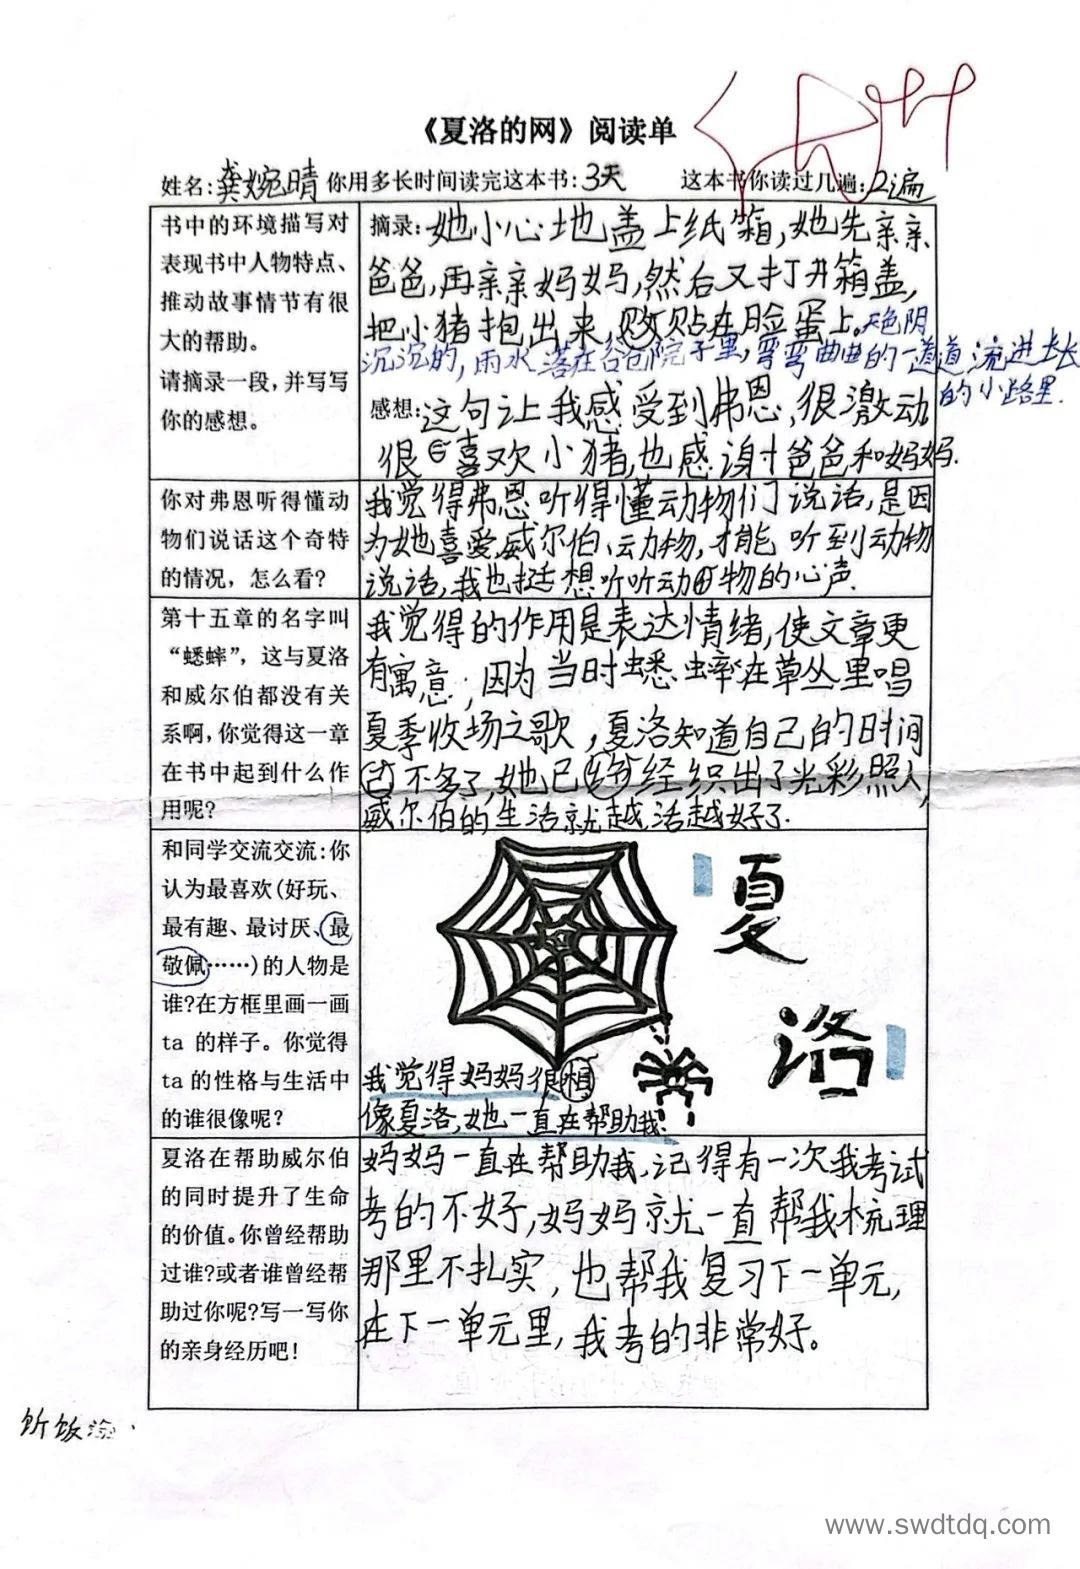 《夏洛的网》阅读单
姓名:龚婉晴 你用多长时间读完这本书:3天 这本书你读过几遍:2遍
书中的环境描写对
表现书中人物特点、
推动故事情节有很
大的帮助。
请摘录一段,并写写
你的感想。
摘录:她小心地盖上纸箱,她先亲亲
爸爸,再亲亲妈妈,然后又打开箱盖,
把小猪抱出来,贴在脸蛋上。天色阴
沉沉的,雨水落在谷仓院子里,弯弯曲曲的一道道流进长长
的小路里.
感想:这句让我感受到弗恩,很激动
很喜欢小猪,也感谢爸爸和妈妈.
你对弗恩听得懂动
物们说话这个奇特
的情况，怎么看?
我觉得弗恩听得懂动物们说话,是因
为她喜爱威尔伯、动物,才能听到动物
说话,我也挺想听听动物的心声.
第十五章的名字叫
“蟋蟀”，这与夏洛
和威尔伯都没有关
系啊,你觉得这一章
在书中起到什么作
用呢?
我觉得的作用是表达情绪,使文章更
有寓意,因为当时蟋蟀在草丛里唱
夏季收场之歌,夏洛知道自己的时间
不多了,她已经织出了光彩照人,
威尔伯的生活就越活越好了.
和同学交流交流:你
认为最喜欢(好玩、
最有趣、最讨厌、最
敬佩……)的人物是
谁?在方框里画一画
ta 的样子。你觉得
ta 的性格与生活中
的谁很像呢?
夏
洛
我觉得妈妈很
像夏洛,她一直在帮助我.
夏洛在帮助威尔伯
的同时提升了生命
的价值。你曾经帮助
过谁?或者谁曾经帮
助过你呢?写一写你
的亲身经历吧!
妈妈一直在帮助我,记得有一次我考试
考的不好,妈妈就一直帮我梳理
那里不扎实，也帮我复习下一单元,
在下一单元里,我考的非常好。
饭
www.swdtdq.com